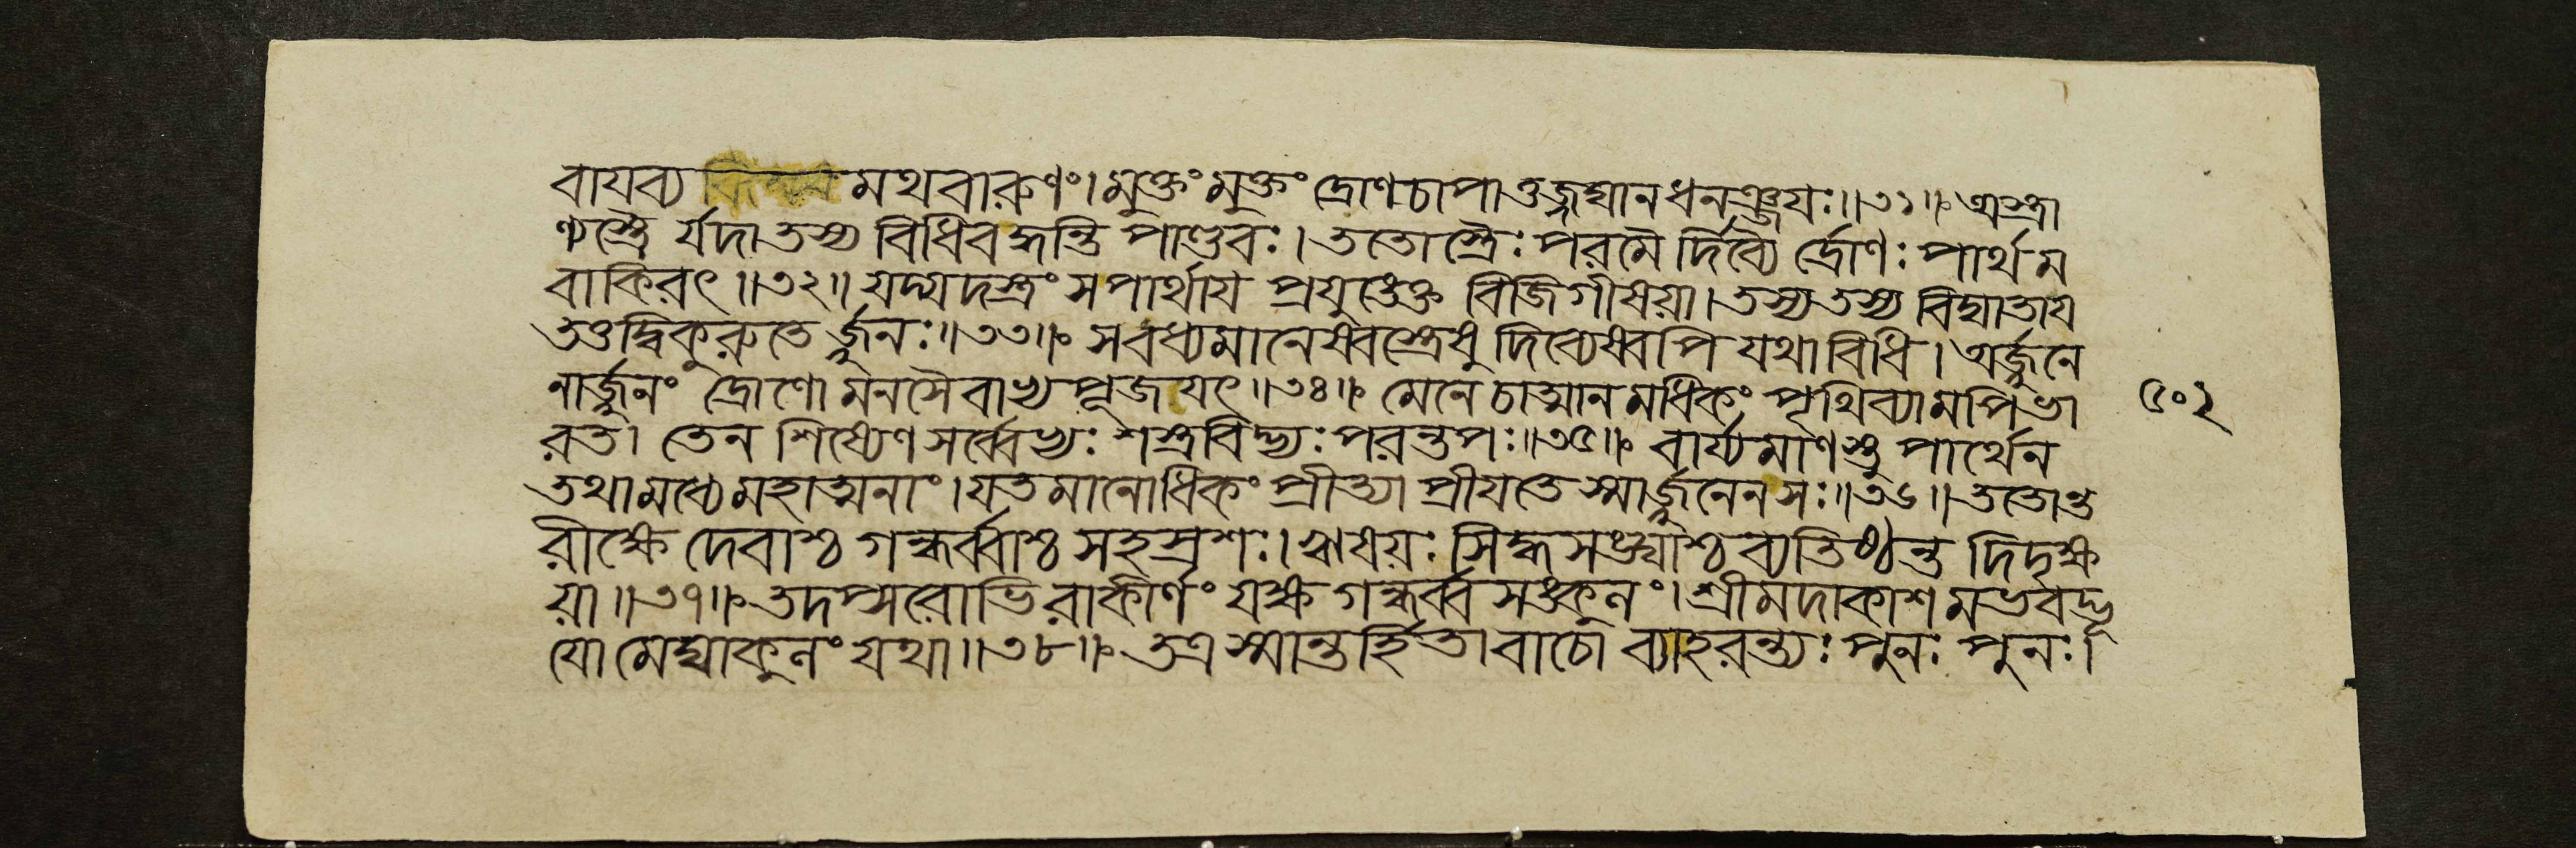 বাযব্য মথবারুণং।মুক্তং মুক্তং দ্রোণচাপাত্তজ্জঘানধনঞ্জযঃ॥৩১॥ অস্ত্রা
ণ্যস্ত্রৈ র্যদাতস্য বিধিবদ্ধন্তি পাণ্ডবঃ।ততোস্ত্রৈঃপরমৈ র্দিব্যৈ র্দ্রোণঃ পার্থম
বাকিরৎ॥৩২॥যদ্যদস্ত্রং সপার্থায প্রযুঙেক্ত বিজিগীষয়া।তস্যতস্য বিঘাতায
তত্তদ্বিকুরুতে র্জ্জুনঃ॥৩৩॥ সবধ্যমানেষ্বস্ত্রেষু দিব্যেষ্বপি যথাবিধি। অর্জ্জুনে
নার্জ্জুনং দ্রোণো মনসৈবাভ্যপূজযৎ॥৩৪॥ মেনেচাত্মানমধিকং পৃথিব্যামপিভা
রত। তেন শিষ্যেণসর্ব্বেভ্যঃ শস্ত্রবিদ্ভ্যঃপরন্তপঃ॥৩৫॥ বার্য্যমাণস্তু পার্থেন
তথামধ্যেমহাত্মনাং।যতমানোধিকং প্রীত্যা প্রীযতে স্মার্জ্জুনেনসঃ॥৩৬॥ততোন্ত
রীক্ষে দেবাশ্চ গন্ধর্ব্বাশ্চ সহস্রশঃ।ঋষয়ঃ সিদ্ধসঙ্ঘাশ্চব্যতিষ্ঠন্ত দিদৃক্ষ
য়া॥৩৭॥তদপ্সরোভিরাকীর্ণং যক্ষগন্ধর্ব্বসঙ্কুলং।শ্রীমদাকাশমভবদ্ভূ
যো মেঘাকুলং যথা॥৩৮॥ তত্রস্মান্তর্হিতাবাচো ব্যাহরন্ত্যঃপুনঃ পুনঃ।
৫০২